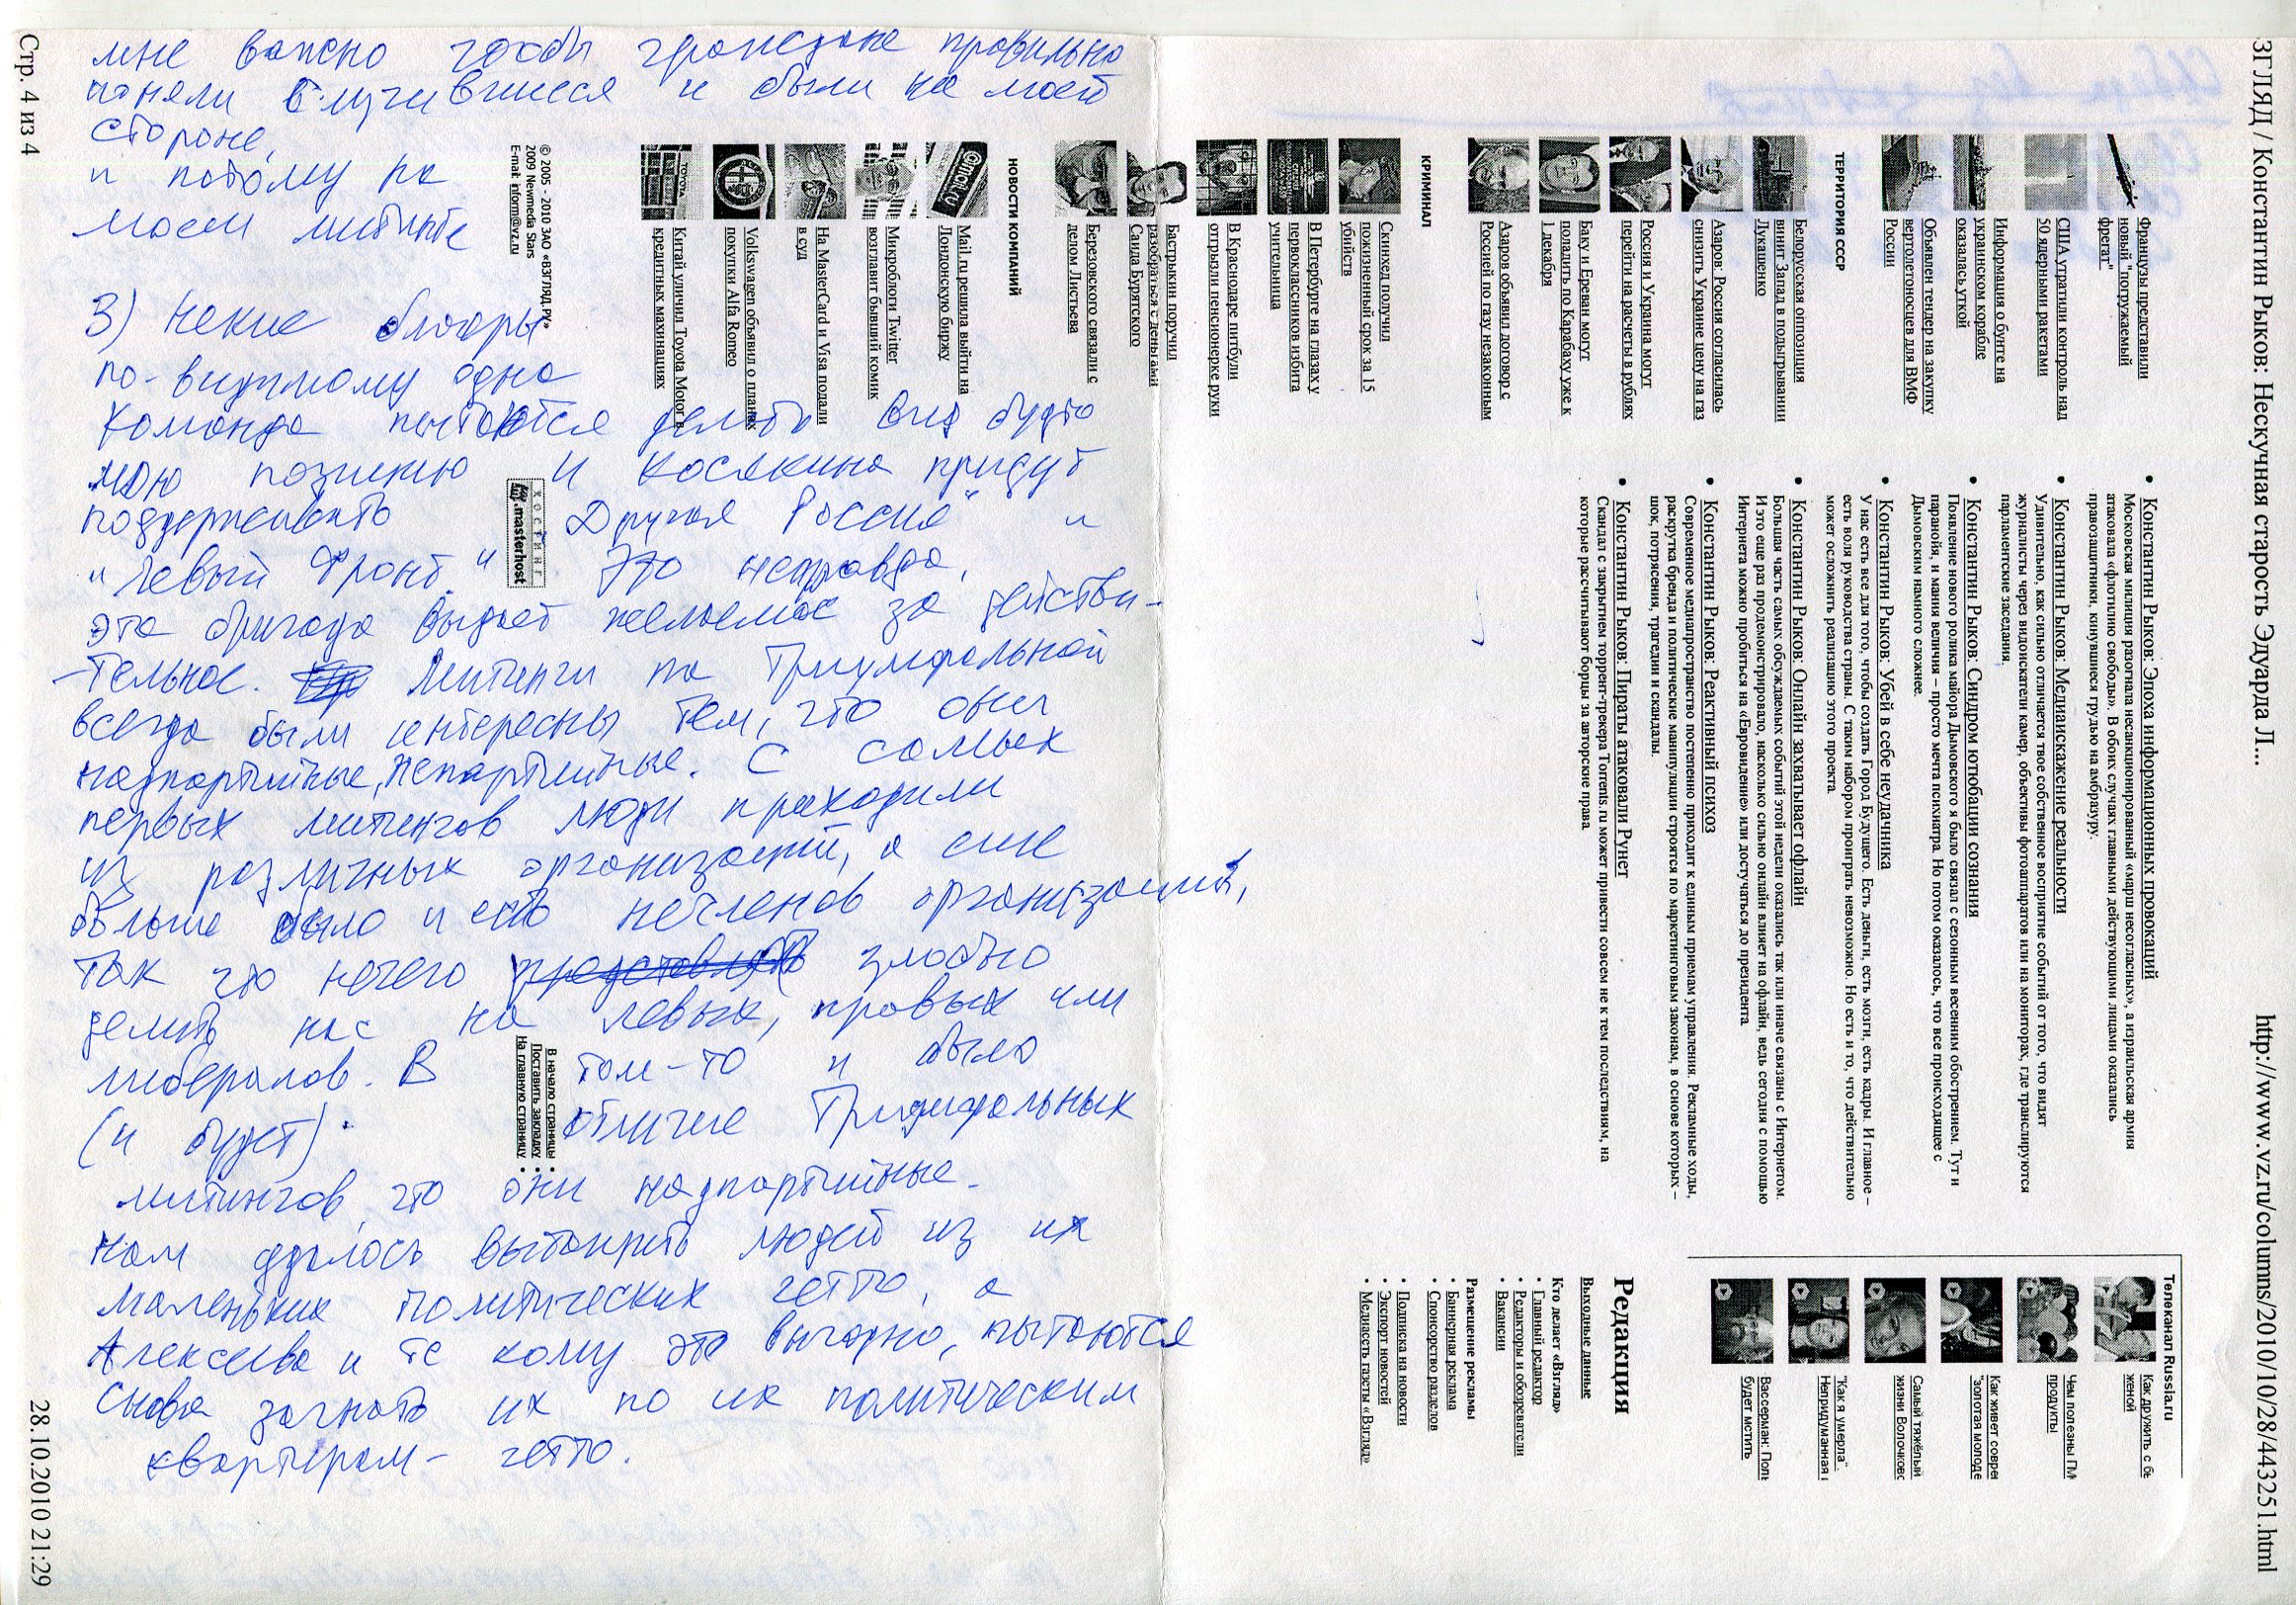 мне важно чтобы граждане правильно
поняли случившееся и были на моей
стороне,
и потому на
моем митинге
3) Некие блогеры
по-видимому одна
команда пытаются делать вид будто
мою позицию и Косякина придут
поддерживать "Другая Россия" и
"Левый Фронт." Это неправда,
эта бригада выдает желаемое за действи-
-тельное. Митинги на Триумфальной
всегда были интересны тем, что они
надпартийные, непартийные. С самых
первых митингов люди приходили
из различных организаций, а еще
больше было и есть нечленов организаций,
так что нечего злобно
делить нас на левых, правых или
либералов. В том-то и было
(и будет) отличие Триумфальных
митингов, что они надпартийные.
Нам удалось вытащить людей из их
маленьких политических гетто, а
Алексеева и те кому это выгодно, пытаются
снова загнать их по их политическим
квартирам- гетто.
Стр. 4 из 4
28.10.2010 21:29
ЗГЛЯД / Константин Рыков: Нескучная старость Эдуарда Л...
http://www.vz.ru/columns/2010/10/28/443251.html
Французы представили
новый "погружаемый
фрегат"
США утратили контроль над
50 ядерными ракетами
Информация о бунте на
украинском корабле
оказалась уткой
Объявлен тендер на закупку
вертолетоносцев для ВМФ
России
ТЕРРИТОРИЯ СССР
Белорусская оппозиция
винит Запад в подыгрывании
Лукашенко
Азаров: Россия согласилась
снизить Украине цену на газ
Россия и Украина могут
перейти на расчеты в рублях
Баку и Ереван могут
поладить по Карабаху уже к
1 декабря
Азаров объявил договор с
Россией по газу незаконным
КРИМИНАЛ
Скинхед получил
пожизненный срок за 15
убийств
В Петербурге на глазах у
первоклассников избита
учительница
В Краснодаре питбули
отгрызли пенсионерке руки
Бастрыкин поручил
разобраться с деньгами
Саида Бурятского
Березовского связали с
делом Листьева
НОВОСТИ КОМПАНИЙ
Mail.ru решила выйти на
Лондонскую биржу
Микроблоги Twitter
возглавит бывший комик
На MasterCard и Visa подали
в суд
Volkswagen объявил о планах
покупки Alfa Romeo
Китай уличил Toyota Motor в
кредитных махинациях
© 2005 - 2010 ЗАО «ВЗГЛЯД.РУ»
2009 Newmedia Stars
E-mail: inform@vz.ru
• Константин Рыков: Эпоха информационных провокаций
Московская милиция разогнала несанкционированный «марш несогласных», а израильская армия
атаковала «флотилию свободы». В обоих случаях главными действующими лицами оказались
правозащитники, кинувшиеся грудью на амбразуру.
• Константин Рыков: Медиаискажение реальности
Удивительно, как сильно отличается твое собственное восприятие событий от того, что видят
журналисты через видоискатели камер, объективы фотоаппаратов или на мониторах, где транслируются
парламентские заседания.
• Константин Рыков: Синдром ютюбации сознания
Появление нового ролика майора Дымовского я было связал с сезонным весенним обострением. Тут и
паранойя, и мания величия – просто мечта психиатра. Но потом оказалось, что все происходящее с
Дымовским намного сложнее.
• Константин Рыков: Убей в себе неудачника
У нас есть все для того, чтобы создать Город Будущего. Есть деньги, есть мозги, есть кадры. И главное –
есть воля руководства страны. С таким набором проиграть невозможно. Но есть и то, что действительно
может осложнить реализацию этого проекта.
• Константин Рыков: Онлайн захватывает офлайн
Большая часть самых обсуждаемых событий этой недели оказались так или иначе связаны с Интернетом.
И это еще раз продемонстрировало, насколько сильно онлайн влияет на офлайн, ведь сегодня с помощью
Интернета можно пробиться на «Евровидение» или достучаться до президента
• Константин Рыков: Реактивный психоз
Современное медиапространство постепенно приходит к единым приемам управления. Рекламные ходы,
раскрутка бренда и политические манипуляции строятся по маркетинговым законам, в основе которых –
шок, потрясения, трагедии и скандалы.
• Константин Рыков: Пираты атаковали Рунет
Скандал с закрытием торрент-трекера Torrents.ru может привести совсем не к тем последствиям, на
которые рассчитывают борцы за авторские права
ХОСТИНГ
.masterhost
В начало страницы •
Поставить закладку •
На главную страницу •
Телеканал Russia.ru
Как дружить с бы
женой
Чем полезны ГМ
продукты
Как живет совре
"золотая молоде
Самый тяжёлый
жизни Волочковс
"Как я умерла".
Непридуманная и
Вассерман: Поп
будет мстить
Редакция
Выходные данные
Кто делает «Взгляд»
• Главный редактор
• Редакторы и обозреватели
• Вакансии
Размещение рекламы
• Баннерная реклама
• Спонсорство разделов
• Подписка на новости
• Экспорт новостей
• Медиавесть газеты «Взгляд»